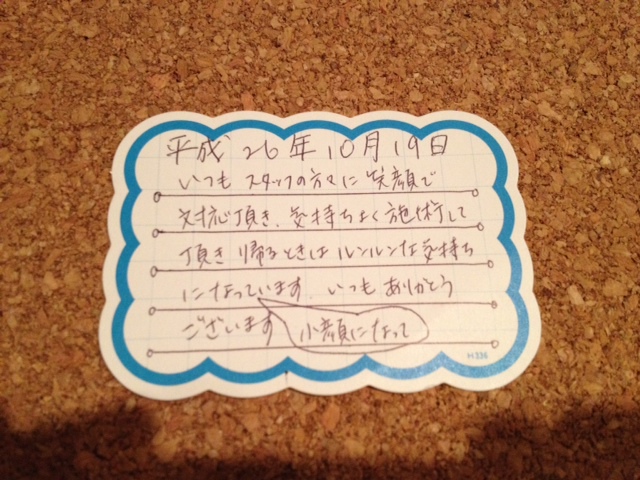 平成26年10月19日
いつも スタッフの方々に 笑顔で
対応頂き、気持ちよく施術して
頂き 帰るときは ルンルンな気持ち
になっています。いつも ありがとう
ございます 小顔になって
H336